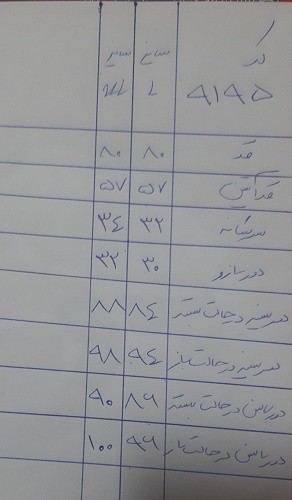 کد سایز سایز
۹۱۹۵ L XL
قد ۸۰ ۸۰
قد آستین ۵۷ ۵۷
سرشانه ۳۲ ۳۴
دور بازو ۳۰ ۳۲
دور سینه در حالت بسته ۸۴ ۸۸
دور سینه در حالت باز ۹۴ ۹۸
دور باسن در حالت بسته ۸۶ ۹۰
دور باسن در حالت باز ۹۶ ۱۰۰